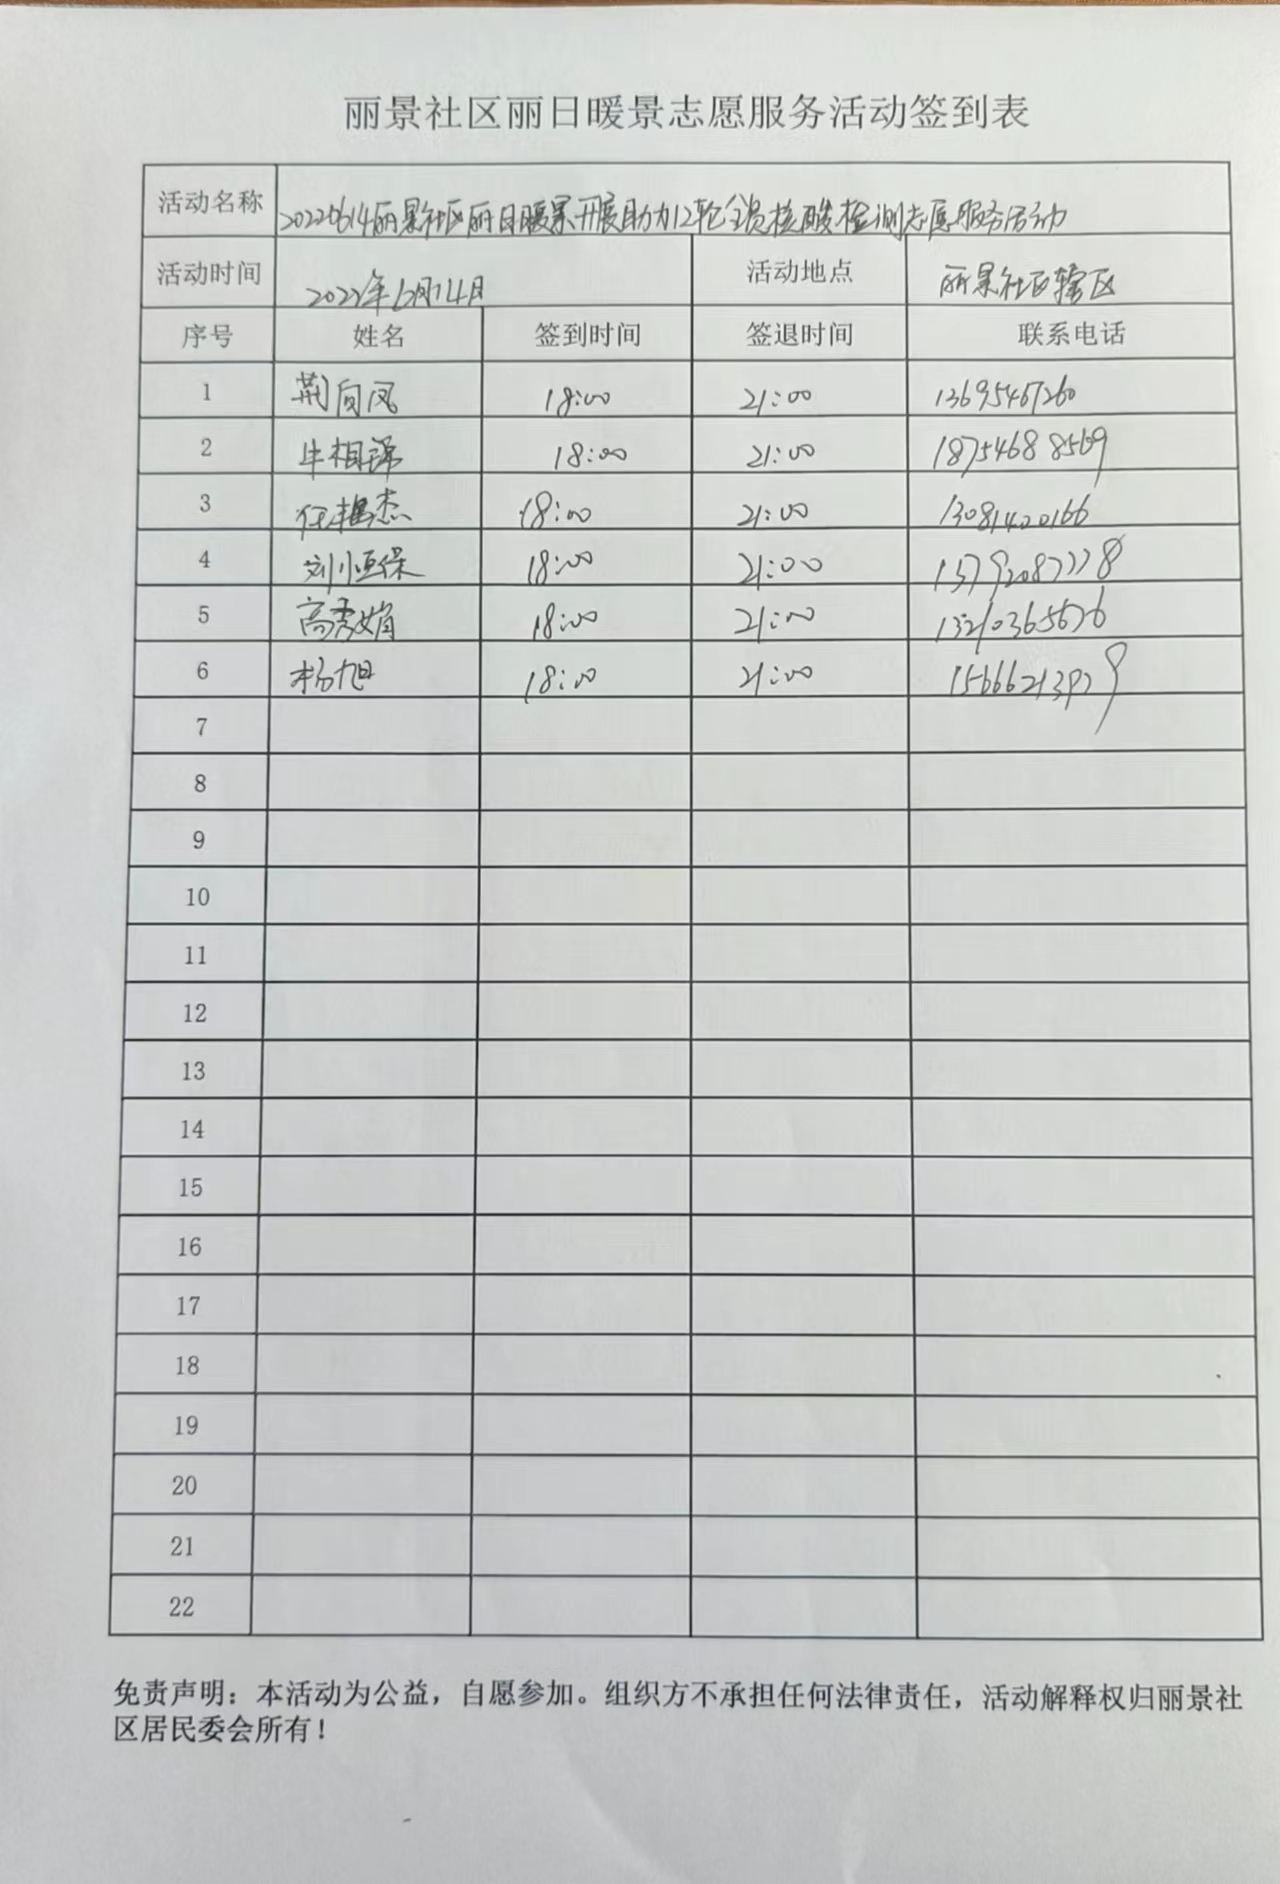 丽景社区丽日暖景志愿服务活动签到表
活动名称 20220614丽景社区丽日暖景开展助力12轮全员核酸检测志愿服务活动
活动时间 2022年6月14日 活动地点 丽景社区辖区
序号 姓名 签到时间 签退时间 联系电话
1 荆向凤 18:00 21:00 13695467260
2 牛相锦 18:00 21:00 18754688569
3 18:00 21:00 13081420166
4 刘恒保 18:00 21:00
5 高秀娟 18:00 21:00 13210365676
6 杨旭 18:00 21:00
7
8
9
10
11
12
13
14
15
16
17
18
19
20
21
22
免责声明：本活动为公益，自愿参加。组织方不承担任何法律责任，活动解释权归丽景社
区居民委会所有！